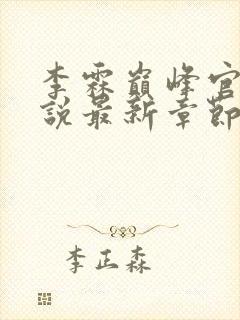 李霖巅峰官
说最新章節
李正森